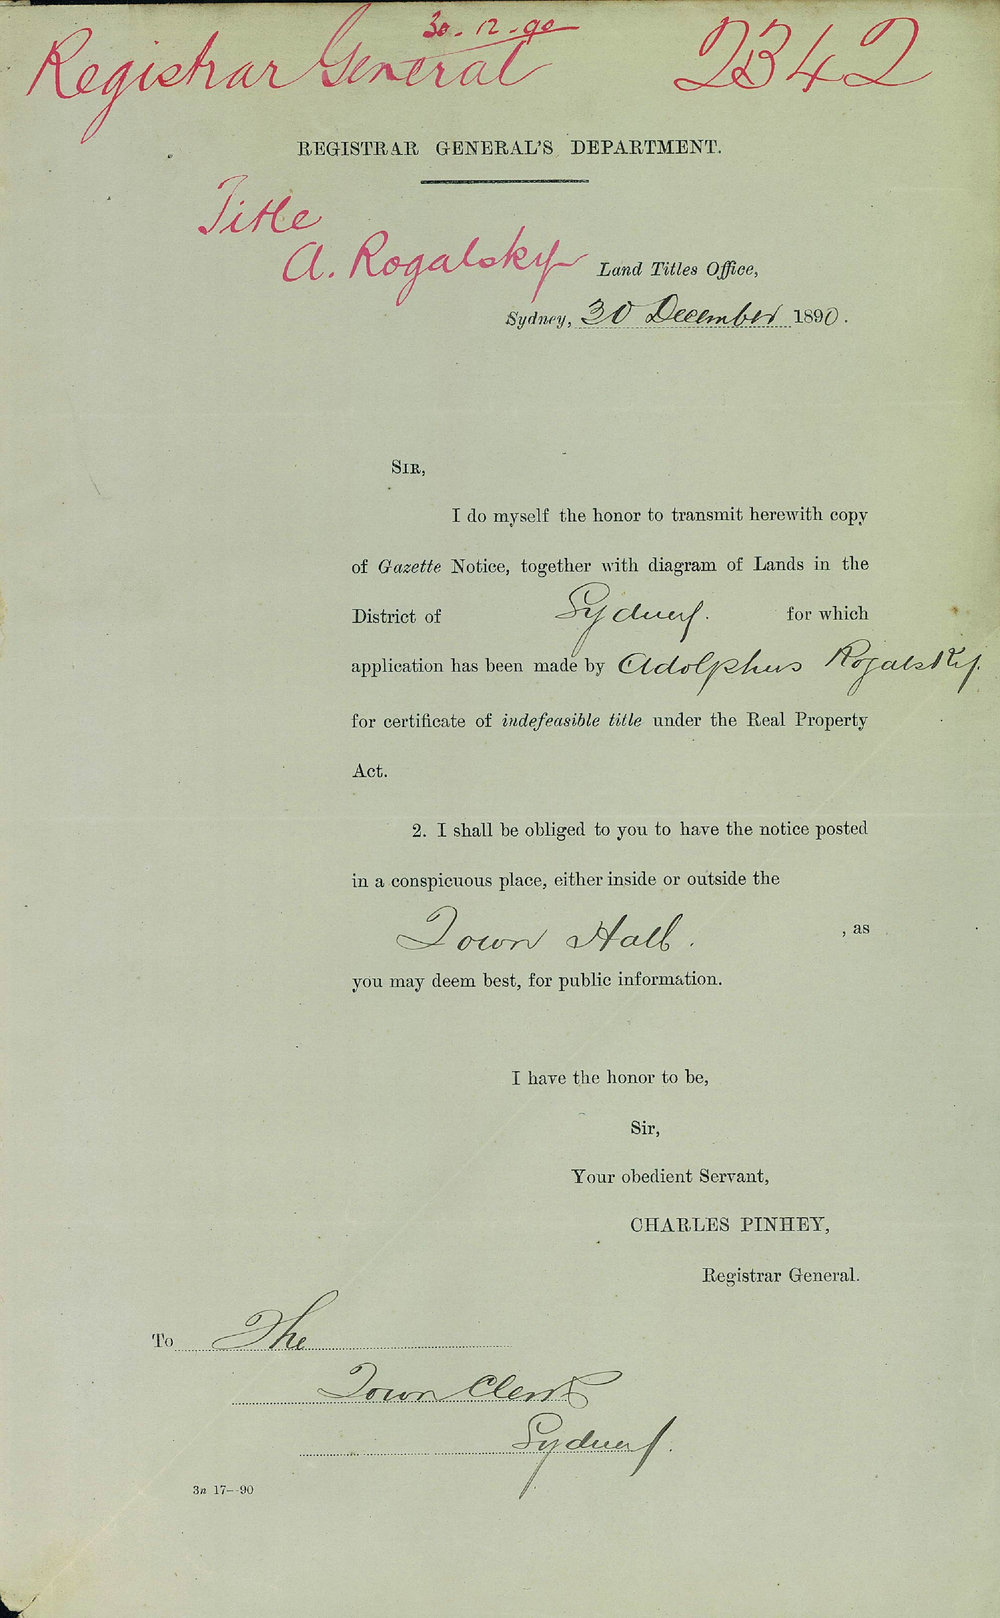 30-12-90
Registrar General 2342
REGISTRAR GENERAL'S DEPARTMENT.
Title
A. Rogalsky
Land Titles Office,
Sydney, 30 December 1890.
SIR,
I do myself the honor to transmit herewith copy
of Gazette Notice, together with diagram of Lands in the
District of Sydney. for which
application has been made by Adolphus Rogalsky.
for certificate of indefeasible title under the Real Property
Act.
2. I shall be obliged to you to have the notice posted
in a conspicuous place, either inside or outside the
Town Hall. , as
you may deem best, for public information.
I have the honor to be,
Sir,
Your obedient Servant,
CHARLES PINHEY,
Registrar General.
To The
Town Clerk
Sydney.
3n 17—90